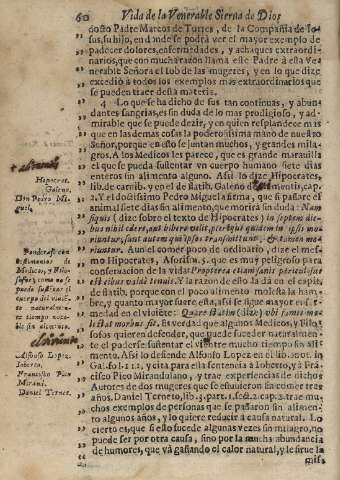 60 Vida de la Venerable Sierva de Dios
docto Padre Marcos de Torres, de la Compañia de Je-
sus, su hijo, en donde se podrà ver el mayor exemplo de
padecer dolores, enfermedades, y achaques extraordi-
narios, que con mucha razon llama este Padre à esta Ve-
nerable Señora el Iob de las mugeres, y en lo que dize,
excediò à todos los exemplos mas extraordinarios que
se pueden traer desta materia.
4 Lo que se ha dicho de sus tan continuas, y abun-
dantes sangrias, es sin duda de lo mas prodigioso, y ad-
mirable que se puede dezir, y en quien resplandece mas
que en las demas cosas la poderosissima mano de nuestro
Señor, porque en esto se juntan muchos, y grandes mila-
gros. A los Medicos les parece, que es grande maravilla
el que se pueda sustentar vn cuerpo humano siete dias
enteros sin alimento alguno. Assi lo dize Hipocrates,
lib. de carnib. y en el de statib. Galeno de alimentis, cap.
2. Y el doctissimo Pedro Miguel afirma, que si passare el
animal siete dias sin alimento, que morirà sin duda: Nam
siquis (dize sobre el texto de Hipocrates) in septem die-
bus nihil edere, aut bibere velit, plerique quidem in ipsis mo-
riuntur, sunt autem qui ipsos transcendunt, & tamen mo-
riuntur. Aun el comer poco de ordinario, dize el mes-
mo Hipocrates, Aforism. 5. que es muy peligroso para
conservacion de la vida: Propterea etiam sanis periculosus
est cibus valde tenuis. Y la razon de ello la dà en el capit.
de statib. porque con el poco alimento molesta la ham-
bre, y quanto mayor fuere esta, assi se sigue mayor enfer-
medad en el viviente: Quare statim (dize) vbi fames mo-
lestat morbus fit. Es verdad que algunos Medicos, y Filo-
sofos quieren defender, que puede suceder naturalmen-
te el poderse sustentar el vientre mucho tiempo sin ali-
mento. Assi lo defiende Alfonso Lopez en el lib. 1001. in
Gal. fol. 112, y cita para esta sentencia à Loberto, y à Frã-
cisco Pico Mirandulano, y trae experiencias de dichos
Autores de dos mugeres que se estuvieron sin comer tres
años. Daniel Terneto, lib. 3. part. 1. sect. 2. cap. 2. trae mu-
chos exemplos de personas que se passaron sin alimento
algunos años, y lo quiere reducir à causa natural. Lo
cierto es, que si esto sucede algunas vezes sin milagro, no
puede ser por otra causa, sino por la mucha abundancia
de humores, que và gastando el calor natural, y le sirue la
mis-
Hipocrat.
Galeno.
Don Pedro Mi-
guel.
Ponderase con
testimonios de
Medicos, y Filo-
sofos; como no se
puede sustentar el
cuerpo del vivien-
te naturalmente
tiempo nota-
ble sin alimento.
Alfonso Lopez.
Loberto.
Francisco Pico
Mirani.
Daniel Ternet.